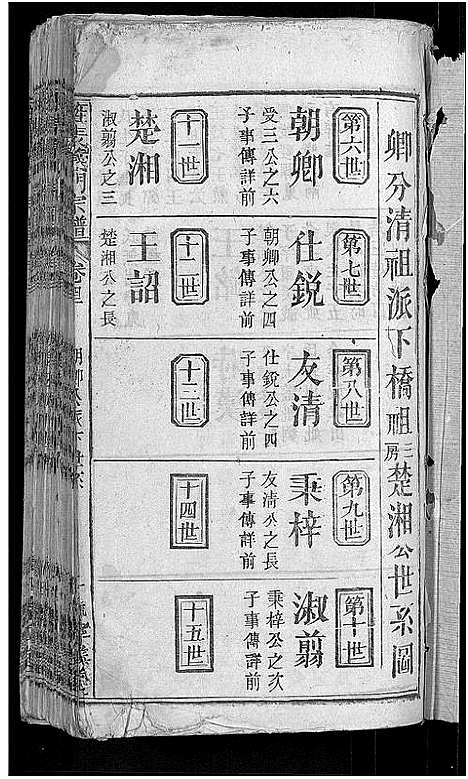 卿分清祖派下橋祖三房楚湘公世系圖
第六世
朝卿
受三公之六
子事傳詳前
十一世
楚湘
淑翦公之三
第七世
仕銳
朝卿公之四
子事傳詳前
十二世
王詔
楚湘公之長
第八世
友清
仕銳公之四
子事傳詳前
十三世
第九世
秉梓
友清公之長
子事傳詳前
十四世
第十世
淑翦
秉梓公之次
子事傳詳前
十五世